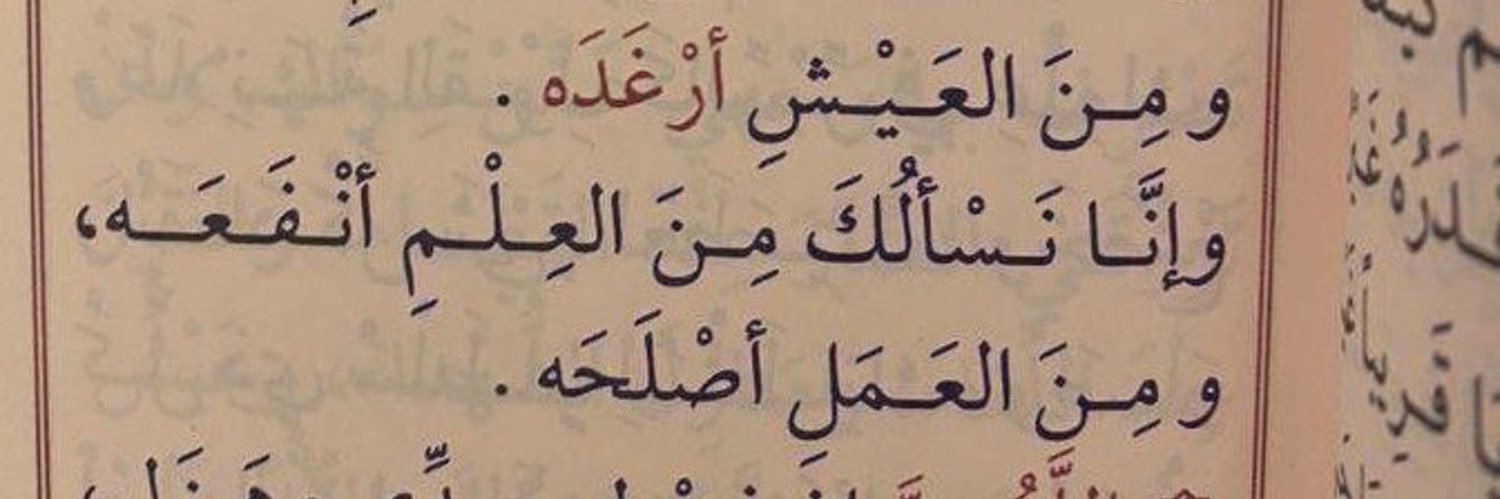 و مِنَ العَيْشِ أرْغَدَه .
وإنَّا نَسْألُكَ مِنَ العِلْمِ أنْفَعَه،
و مِنَ العَمَلِ أصْلَحَه .